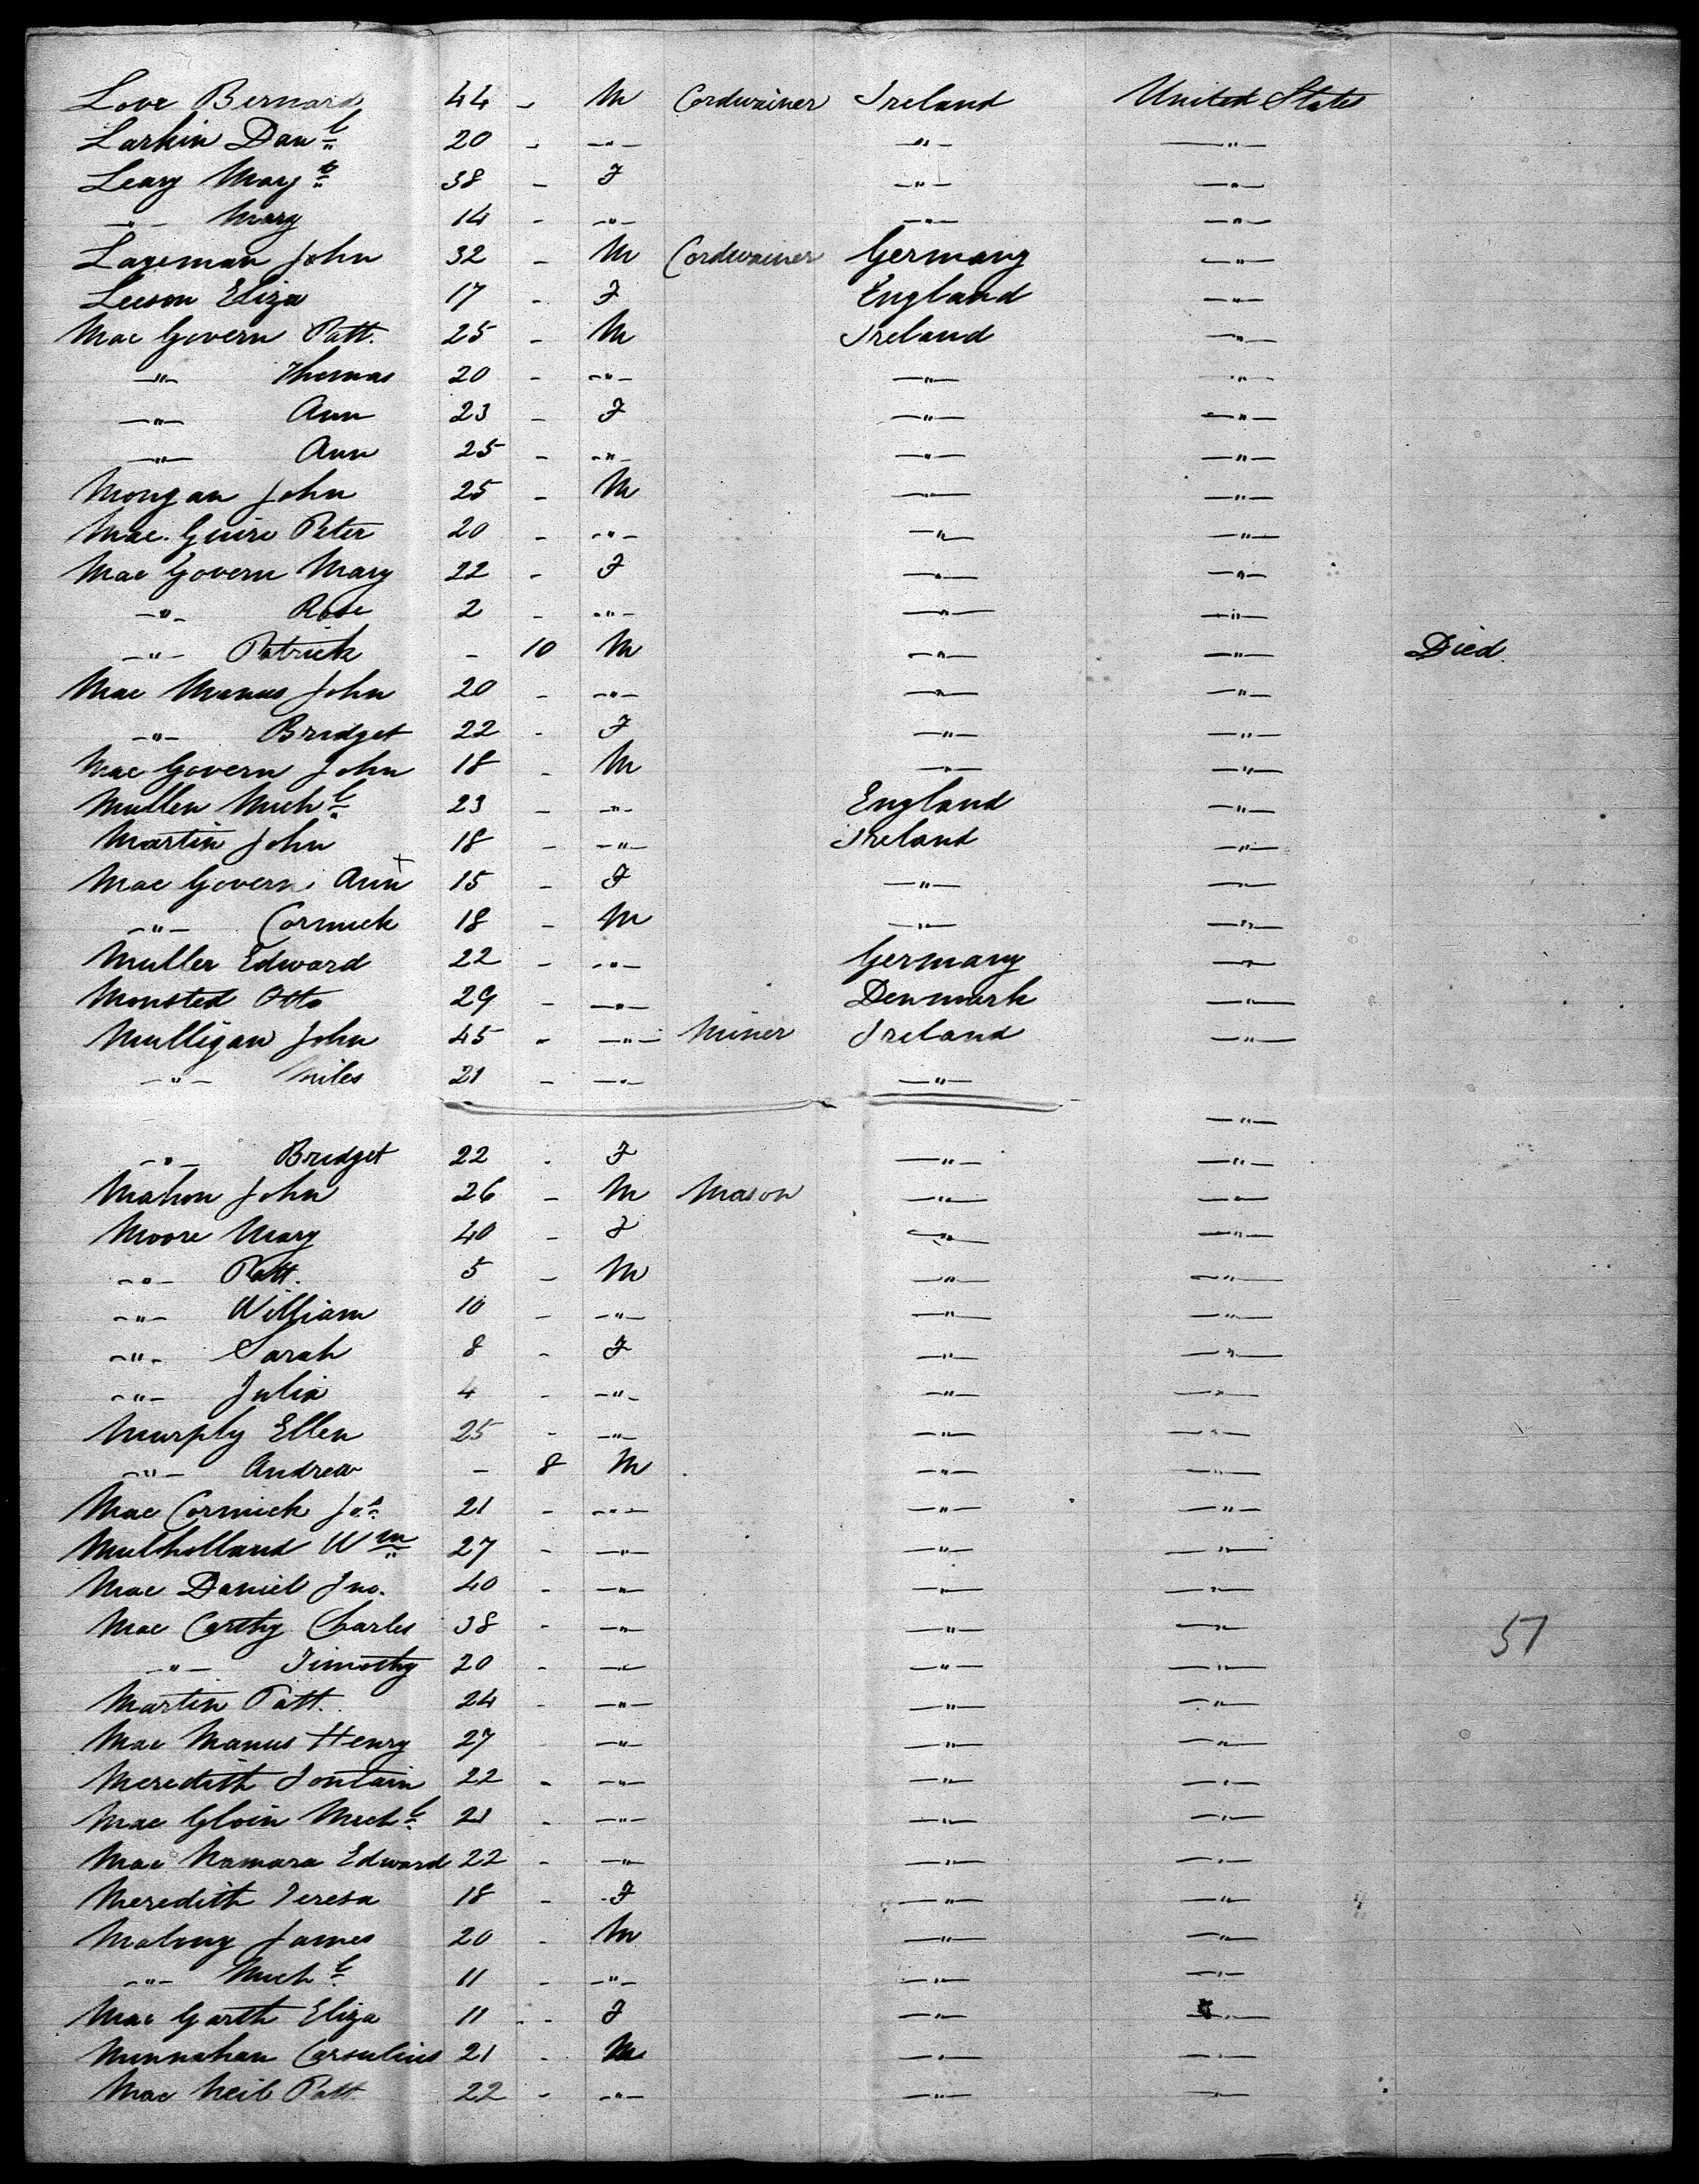 Love Bernard 44 - M Cordwainer Ireland United States
Larkin Danl 20 - -"- -"- -"-
Leary Margt 38 - F -"- -"-
-"- Mary 14 - -"- -"- -"-
Lageman John 32 - M Cordwainer Germany -"-
Leeson Eliza 17 - F England -"-
Mac Govern Patt. 25 - M Ireland -"-
-"- Thomas 20 - -"- -"- -"-
-"- Ann 23 - F -"- -"-
-"- Ann 25 - -"- -"- -"-
Mongan John 25 - M -"- -"-
Mac. Guire Peter 20 - -"- -"- -"-
Mac Govern Mary 22 - F -"- -"-
-"- Rose 2 - -"- -"- -"-
-"- Patrick - 10 M -"- -"- Died.
Mac Manus John 20 - -"- -"- -"-
-"- Bridget 22 - F -"- -"-
Mac Govern John 18 - M -"- -"-
Mullen Michl 23 - -"- England -"-
Martin John 18 - -"- Ireland -"-
Mac Govern Ann + 15 - F -"- -"-
-"- Cormick 18 - M -"- -"-
Muller Edward 22 - -"- Germany -"-
Monsted Otto 29 - -"- Denmark -"-
Mulligan John 45 - -"- Miner Ireland -"-
-"- Miles 21 - -"- -"-
-"-
-"- Bridget 22 - F -"- -"-
Mahon John 26 - M Mason -"- -"-
Moore Mary 40 - F -"- -"-
-"- Patt. 5 - M -"- -"-
-"- William 10 - -"- -"- -"-
-"- Sarah 8 - F -"- -"-
-"- Julia 4 - -"- -"- -"-
Murphy Ellen 25 - -"- -"- -"-
-"- Andrew - 8 M -"- -"-
Mac Cormick Jos 21 - -"- -"- -"-
Mulholland Wm 27 - -"- -"- -"-
Mac Daniel Jno. 40 - -"- -"- -"-
Mac Carthy Charles 38 - -"- -"- -"- 57
-"- Timothy 20 - -"- -"- -"-
Martin Patt. 24 - -"- -"- -"-
Mac Manus Henry 27 -"- -"- -"-
Meredith Fontain 22 - -"- -"- -"-
Mac Gloin Michl 21 - -"- -"- -"-
Mac Namara Edward 22 - -"- -"- -"-
Meredith Teresa 18 - F -"- -"-
Malony James 20 - M -"- -"-
-"- Michl 11 - -"- -"- -"-
Mac Garth Eliza 11 - F -"- -"-
Munnahan 21 - M -"- -"-
Mac Neil Patt 22 - -"- -"- -"-